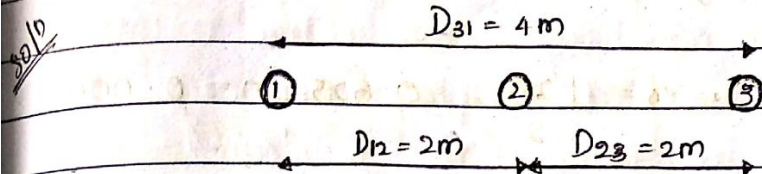 Sol^n
D31 = 4 m
1 2 3
D12 = 2m D23 = 2m